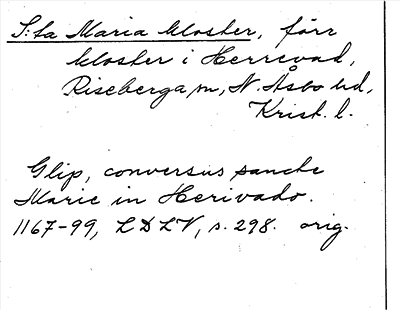 S:ta Maria kloster, förr
kloster i Herrevad,
Riseberga sn, N. Åsbo hd,
Krist. l.
Glip, conversus sancte
Marie in Herivado.
1167-99, LDLV, s. 298. orig.